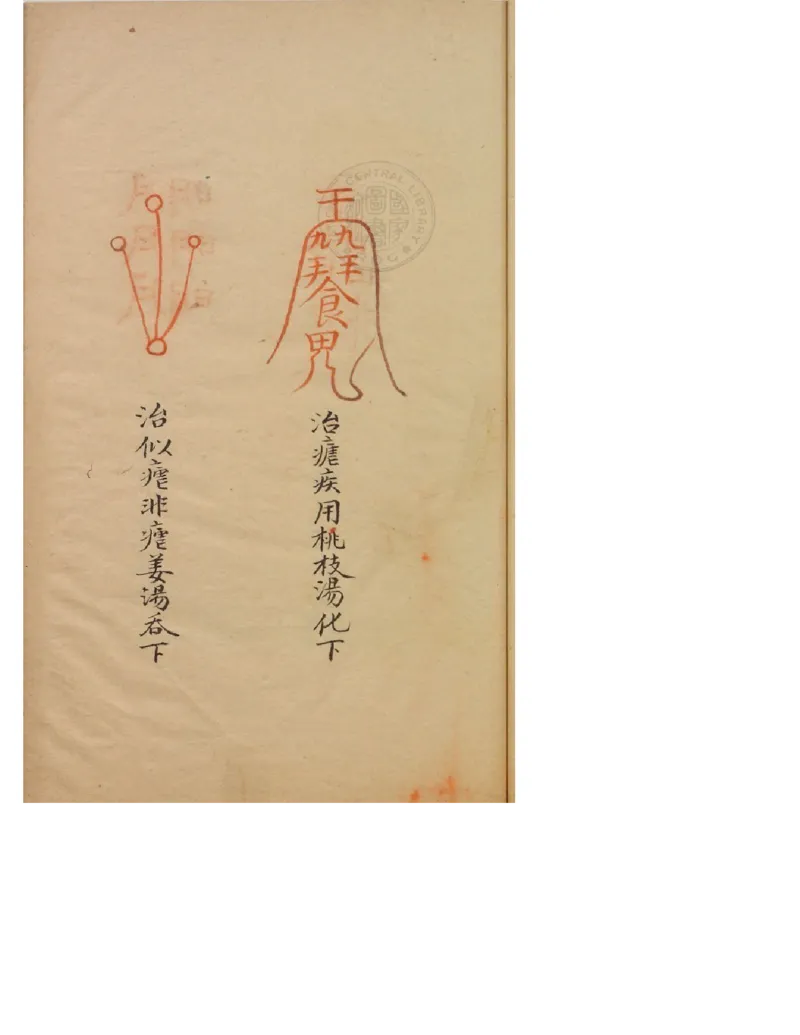 治瘧疾用桃枝湯化下
治似瘧非瘧姜湯吞下
食鬼
CENTRAL LIBRARY